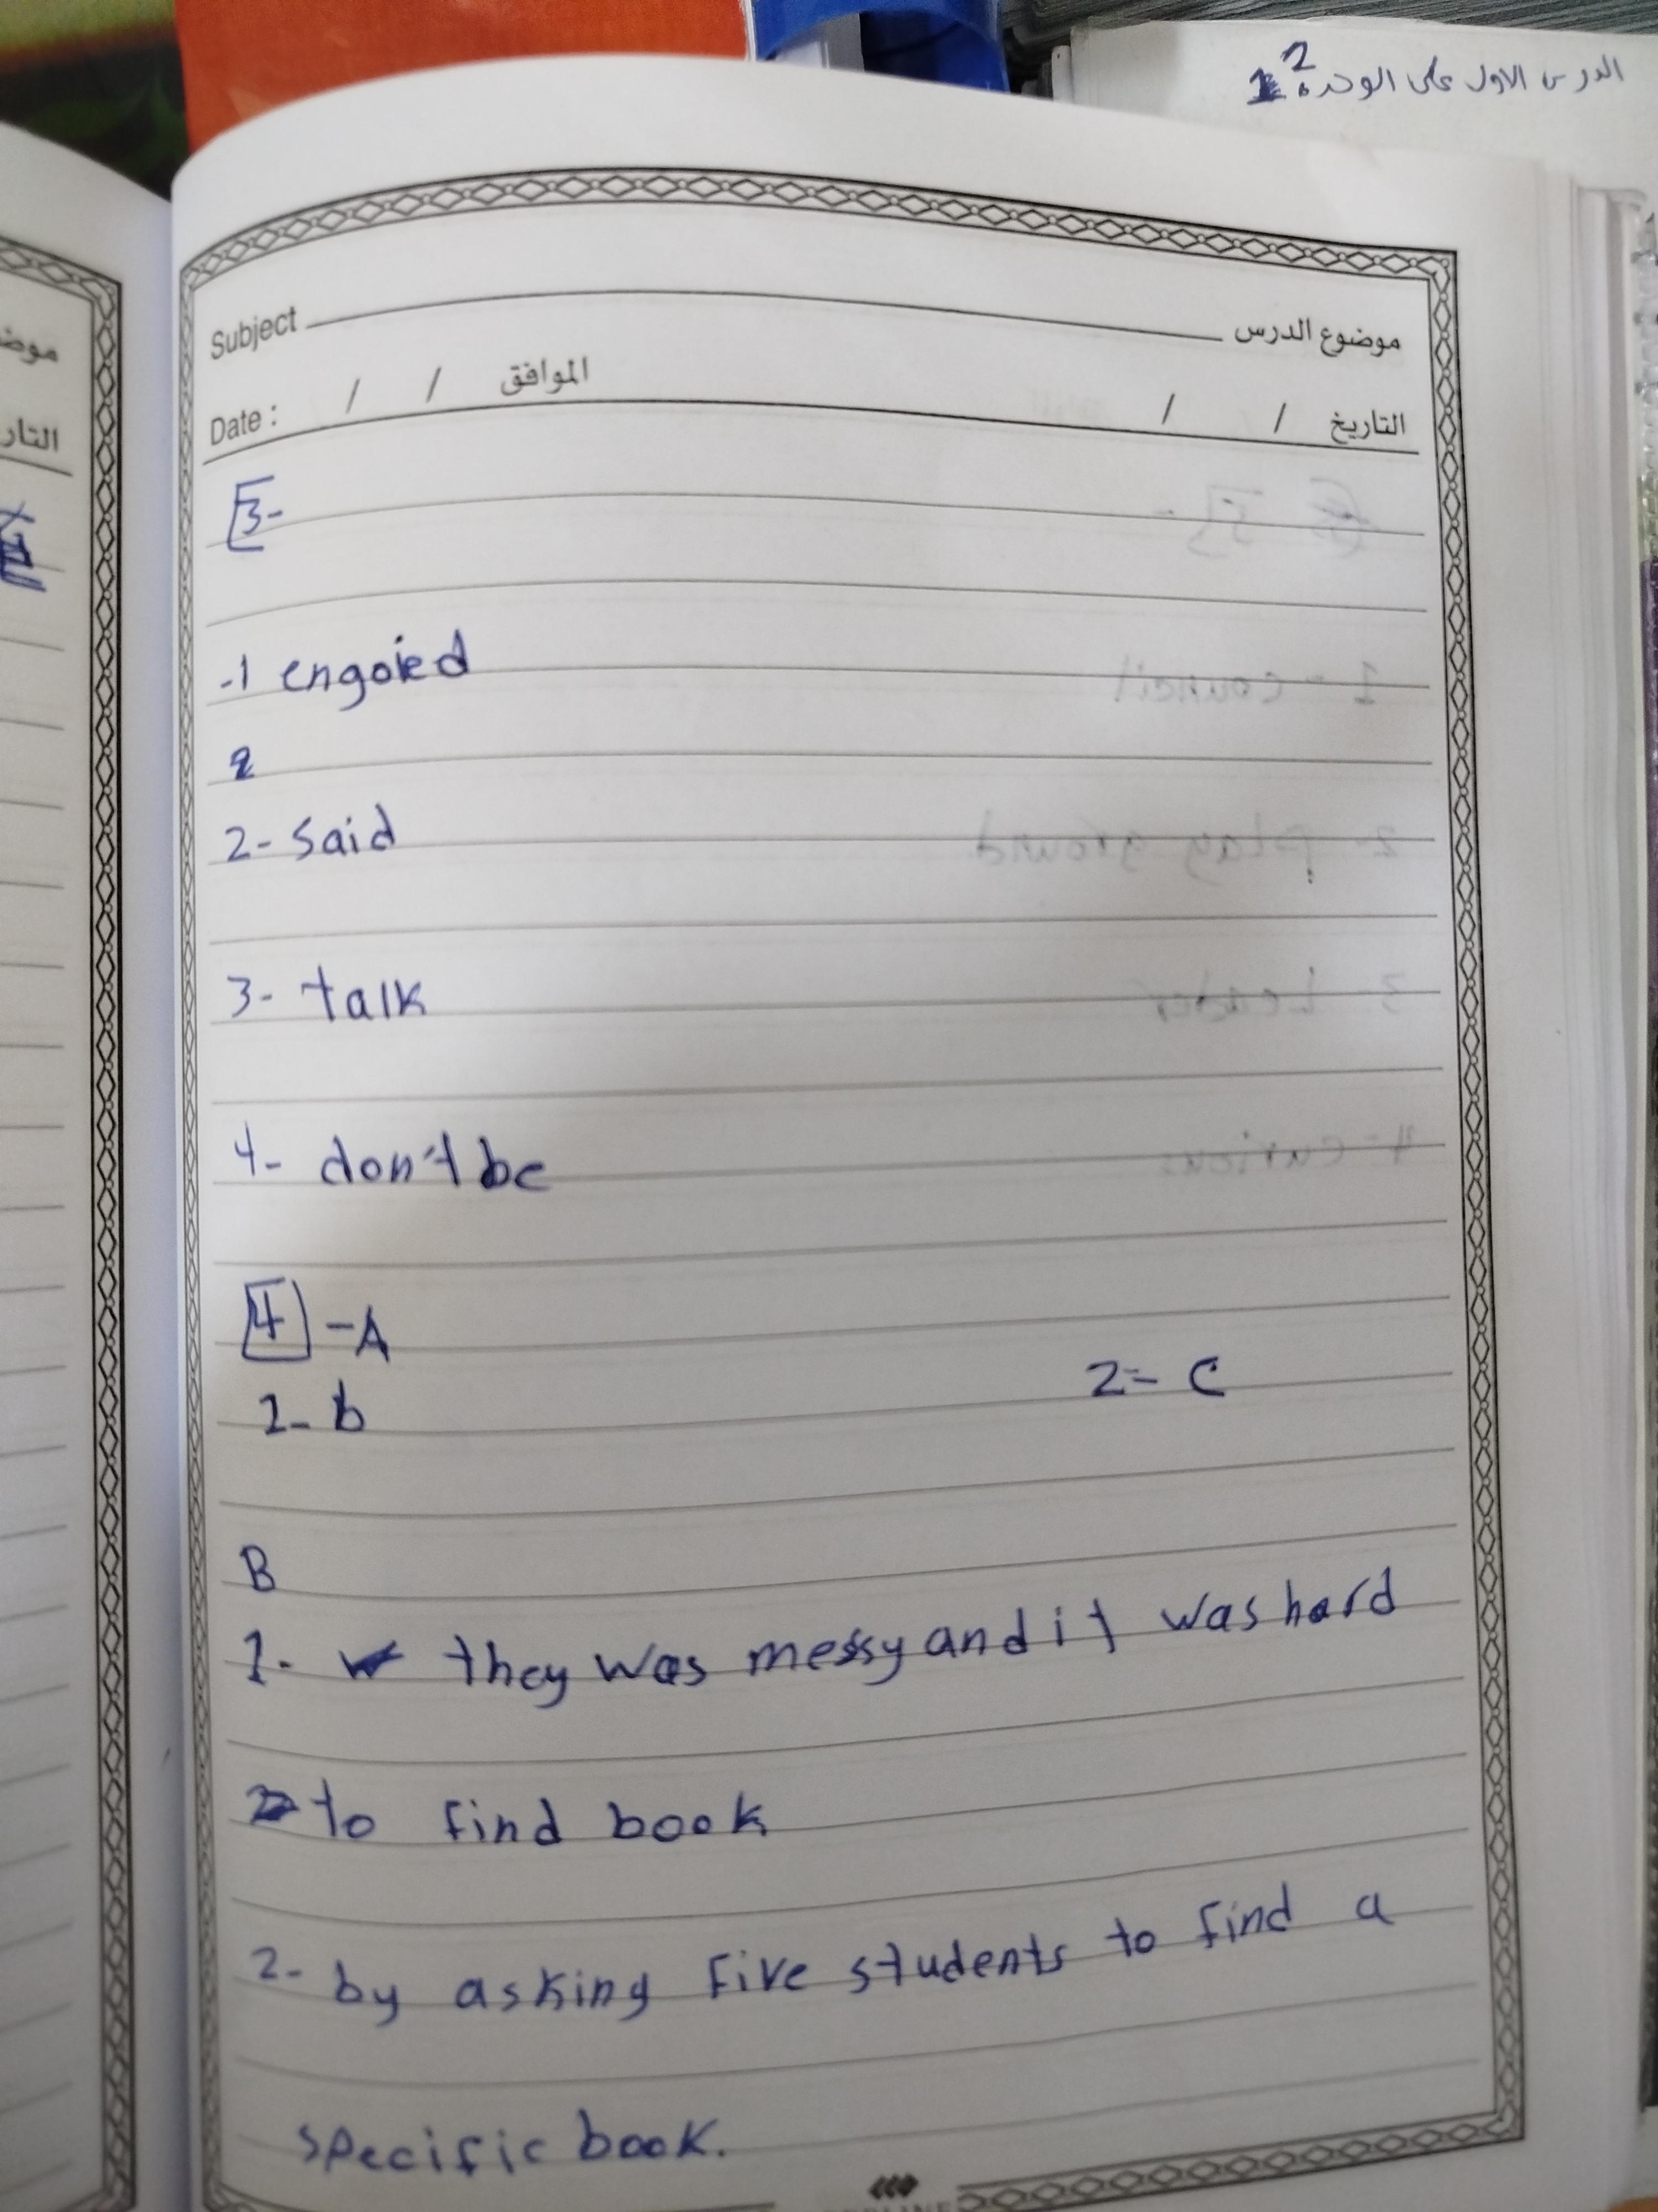 الدرس الاول على الوحدة 2
موضوع الدرس
Subject
التاريخ / / الموافق / / Date :
3-
-1 engoied
2
2- said
3- talk
4- don't be
4 -A
1- b
2- c
B
1- they was messy and it was hard
to find book
2- by asking five students to find a
specific book.